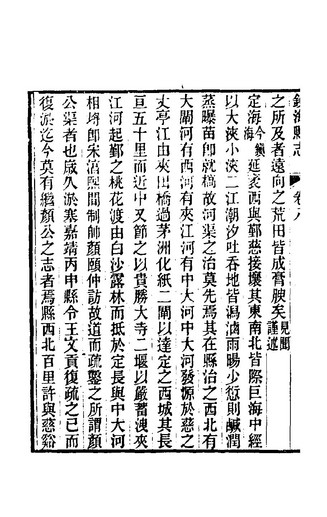 鎮海縣志 卷八
之所及者遠向之荒田皆成膏腴矣見聞謹述
定海今鎮海延袤西與鄞慈接壤其東南北皆際巨海中經
以大浹小浹二江潮汐吐吞地皆潟滷雨暘少愆則鹹潤
蒸曝苗卽就槁故河渠之治莫先焉其在縣治之西北有
大閘河有西河有夾江河有中大河中大河發源於慈之
丈亭江由夾田橋過茅洲化紙二閘以達定之西城其長
亘五十里而近中又節之以貴勝大寺二堰以嚴蓄洩夾
江河起鄞之桃花渡由白沙露林而抵於定長與中大河
相埒卽宋淳熙間制帥顏頤仲訪故道而疏鑿之所謂顏
公渠者也歲久淤塞嘉靖丙申縣令王文貢復疏之已而
復淤迄今莫有繼顏公之志者焉縣西北百里許與慈谿